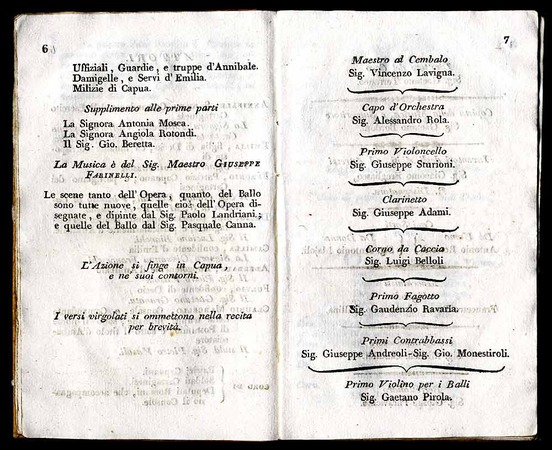 6
Uffiziali, Guardie, e truppe d'Annibale.
Damigelle, e Servi d'Emilia.
Milizie di Capua.
Supplimento alle prime parti
La Signora Antonia Mosca.
La Signora Angiola Rotondi.
Il Sig. Gio. Beretta.
La Musica è del Sig. Maestro GIUSEPPE
FARINELLI.
Le scene tanto dell'Opera, quanto del Ballo
sono tutte nuove, quelle cioè dell'Opera di-
segnate, e dipinte dal Sig. Paolo Landriani;
e quelle del Ballo dal Sig. Pasquale Canna.
L'Azione si finge in Capua,
e ne' suoi contorni.
I versi virgolati si ommettono nella recita
per brevità.
7
Maestro al Cembalo
Sig. Vincenzo Lavigna.
Capo d'Orchestra
Sig. Alessandro Rola.
Primo Violoncello
Sig. Giuseppe Sturioni.
Clarinetto
Sig. Giuseppe Adami.
Corno da Caccia
Sig. Luigi Belloli
Primo Fagotto
Sig. Gaudenzio Ravaria.
Primi Contrabbassi
Sig. Giuseppe Andreoli-Sig. Gio. Monestiroli.
Primo Violino per i Balli
Sig. Gaetano Pirola.